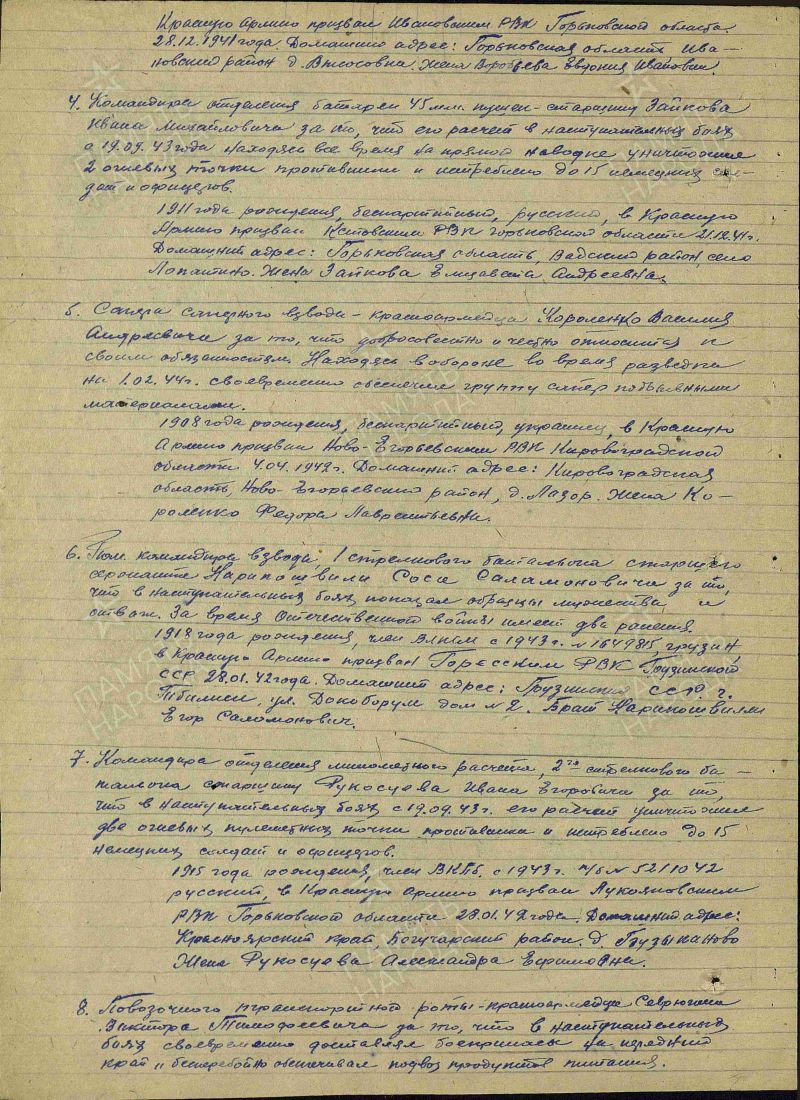 Красную Армию призван Ивановским РВК Горьковской области
28.12.1941 года. Домашний адрес: Горьковская область Ива-
новский район д. Власовка. Жена Воробьева Евдокия Ивановна.
4. Командира отделения батареи 45 м.м. пушек - старшину Зайкова
Ивана Михайловича за то, что его расчет в наступательных боях
с 19.09.43 года находясь все время на прямой наводке уничтожил
2 огневых точки противника и истреблено до 15 немецких сол-
дат и офицеров.
1911 года рождения, беспартийный, русский, в Красную
Армию призван Кстовским РВК Горьковской области 21.12.41г.
Домашний адрес: Горьковская область, Вадский район, село
Лопатино. Жена Зайкова Елизавета Андреевна.
5. Сапера саперного взвода - красноармейца Короленко Василия
Андреевича за то, что добросовестно и честно относится к
своим обязанностям. Находясь в обороне во время разведки
на 1.02.44г. своевременно обеспечил группу сапер подрывными
материалами.
1908 года рождения, беспартийный, украинец, в Красную
Армию призван Ново-Егорьевским РВК Кировоградской
области 4.04.1942г. Домашний адрес: Кировоградская
область, Ново-Егорьевский район, д. Лазор. Жена Ко-
роленко Федора Лаврентьевна.
6. Пом. командира взвода, 1 стрелкового батальона старшего
сержанта Нариношвили Соса Саламоновича за то,
что в наступательных боях показал образцы мужества и
отваги. За время Отечественной войны имеет два ранения.
1918 года рождения, член ВЛКСМ с 1943г. № 1649815, грузин
в Красную Армию призван Горесским РВК Грузинской
ССР 28.01.42 года. Домашний адрес: Грузинская ССР г.
Тбилиси, ул. дом № 2. Брат Нариношвили
Егор Саломонович.
7. Командира отделения минометного расчета, 2го стрелкового ба-
тальона старшину Рукосуева Ивана Егоровича за то,
что в наступательных боях с 19.09.43г. его расчет уничтожил
две огневых пулеметных точки противника и истреблено до 15
немецких солдат и офицеров.
1915 года рождения, член ВКПб. с 1943г. п/б № 5211042
русский, в Красную Армию призван Лукояновским
РВК Горьковской области 28.01.42 года. Домашний адрес:
Красноярский край, Богучарский район. д. Грузыканово
Жена Рукосуева Александра Ефимовна.
8. Повозочного транспортной роты - красноармейца Севрюгина
Виктора Тимофеевича за то, что в наступательных
боях своевременно доставлял боеприпасы на передний
край и бесперебойно обеспечивал подвоз продуктов питания.